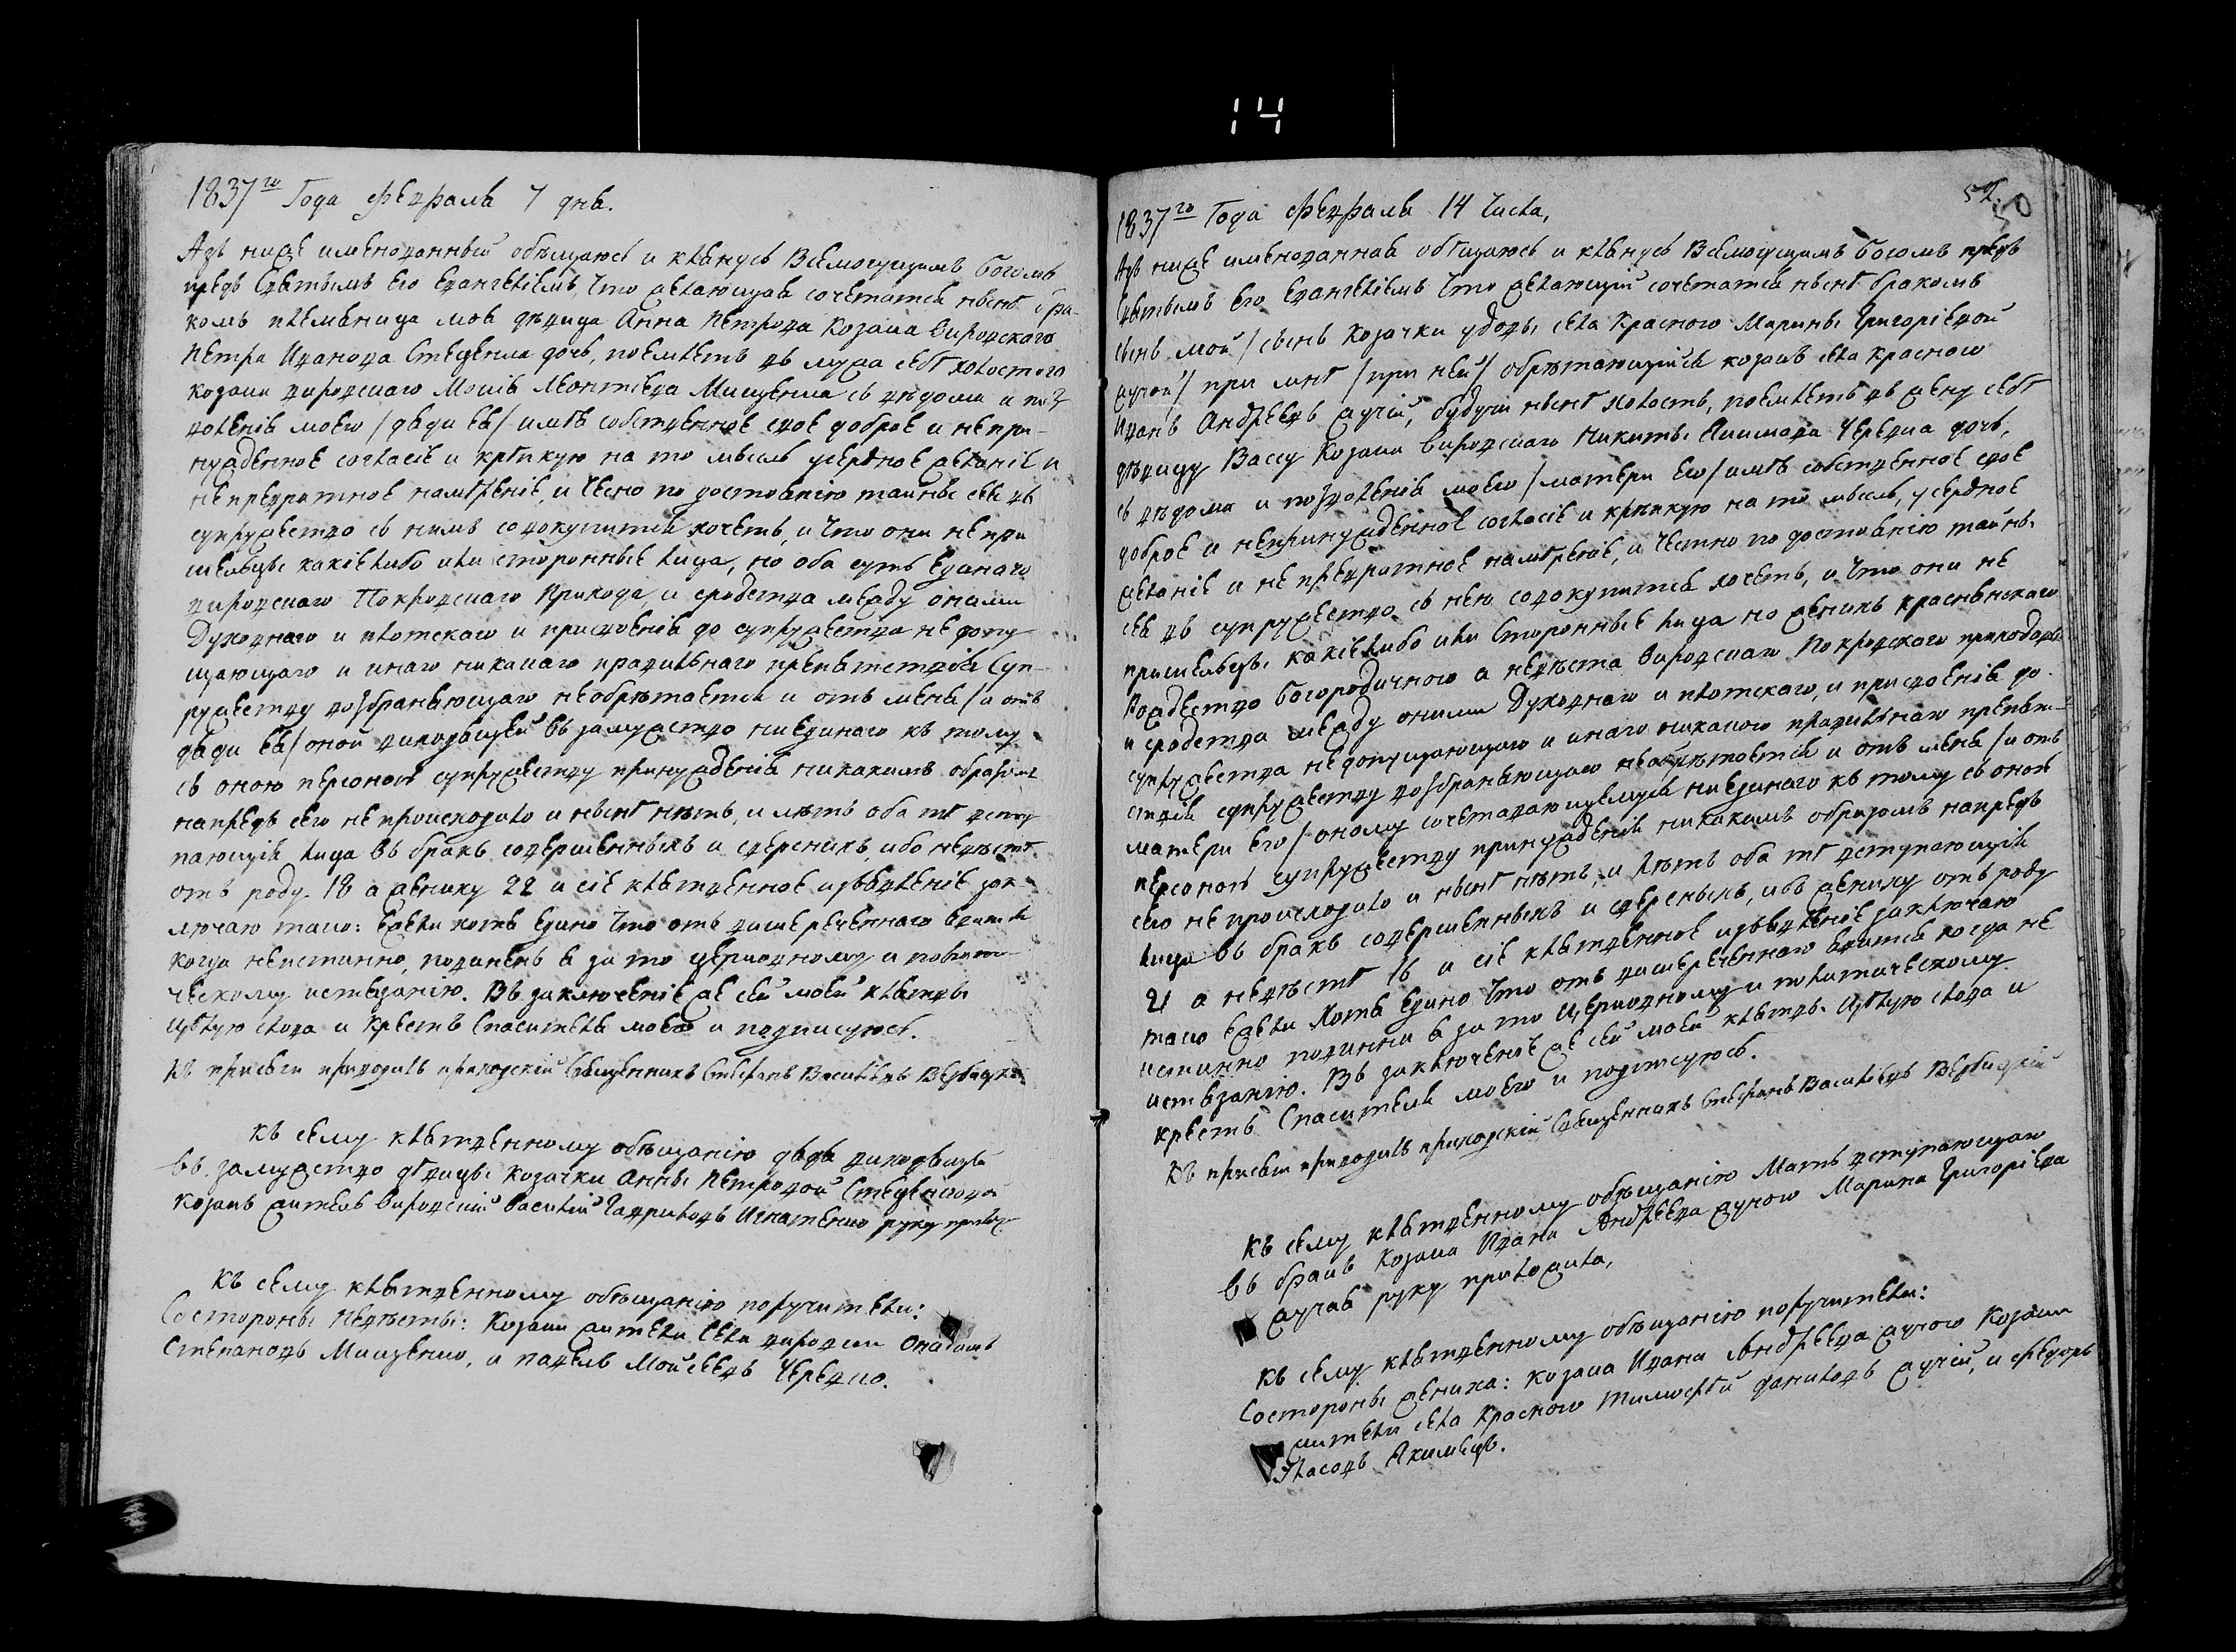 14
1837го Года февраля 7 дня.
Азъ ниже именованный обѣщаюсь и клянусь Всемогущимъ Богомъ
предъ Святымъ Его Евангеліемъ, что желающая сочетатся нынѣ бра-
комъ племяница моя дѣвица Анна Петрова Козака Вировского
Петра Иванова Стеценка дочь, поемлетъ въ мужа себѣ холостого
козака вировскаго Моисѣя Леонтіева Мищенка съ вѣдома и поз-
воленія моего /дяди ея/ имѣя собственное свое доброе и непри-
нужденное согласіе и крѣпкую на то мысль усердное желаніе и
непревратное намѣреніе, и чесно по достоянію тайны сея въ
супружество съ нимъ совокупится хочетъ, и что они не при
шельцы какіелибо или сторонныѣ лица, но оба суть единаго
вировскаго Покровскаго Прихода, и сродства между оными
Духовнаго и плотскаго и присвоенія до супружества не допу
щающаго и инаго никакого правильнаго препятствія суп-
ружеству возбраняющаго необрѣтается и отъ мене /и отъ
дяди ея/ оной виходящей въ замужство ниединаго къ тому
съ оною персоною супружеству принужденія никакимъ образомъ
напредъ сего не происходило и нынѣ нѣтъ, и лѣтъ оба тѣ всту
пающія лица въ бракъ совершенныхъ и сверсникъ, ибо невѣстѣ
отъ роду 18 а жениху 22 и сіе клятвенное извѣденіе зак-
лючаю тако: ежели хотя едино что отъ вишереченнаго явится
когда неистинно, повиненъ я за то церковному и полити-
ческому истязанію. Въ заключеніе же сей моей клятвы
цѣлую слова и крестъ Спасителя моего и подписуюсь.
Къ присяги приводилъ приходскій Священникъ Стефанъ Василіевъ Вербицкій
Къ сему клятвенному обѣщанію дядя виходящей
въ замужство дѣвицы козачки Анны Петровой Стеценковой
козакъ житель Вировскій Василій Гавриловъ Игнатенко руку прилож.
Къ сему клятвенному обѣщанію поручители:
Состороны Невѣсты: Козаки жители села вировки
Степановъ Мищенко, и Павелъ Мойсеевъ Чередко.
50
1837го Года февраля 14 Числа,
Азъ ниже именованная обѣщаюсь и клянусь Всемогущимъ Богомъ предъ
Святымъ Его Евангеліемъ что желающій сочетатся нынѣ бракомъ
сынъ мой /сынъ Козачки удовы села Красного Марины Григоріевой
жучой/ при мнѣ /при ней/ обрѣтающійся козакъ села Красного
Иванъ Андрѣевъ жучій, будучи нынѣ холостъ, поемлетъ въ жену себѣ
дѣвицу Вассу Козака Вировскаго Никиты Екимова Чередка дочь,
съ вѣдома и позволенія моего /матери Его/ имѣя собственное свое
доброе и непринужденное согласіе и крѣпкую на то мысль, усердное
желаніе и не превратное намѣреніе, и честно по достоянію тайны
сея въ супружество съ нею совокупится хочетъ, и что они не
пришельцы какіелибо или сторонныѣ лица но женихъ краснянскаго
Рождество Богородичного а невѣста Вировскаго Покровского приходовъ
и сродства между оными Духовнаго и плотскаго, и присвоенія до
супружества не допущающаго и инаго никакого правильнаго препят-
ствія супружеству возбраняющаго необрѣтается и отъ мене /и отъ
матери Его/ оному сочетавающемуся ниединаго къ тому съ оной
персоной супружеству принужденія никакимъ образомъ напредъ
сего не происходило и нынѣ нѣтъ, и лѣтъ оба тѣ вступающія
лица въ бракъ совершенныхъ и сверсныхъ, ибо жениху отъ роду
21 а невѣстѣ и сіе клятвенное извѣденіе заключаю
тако ежели хотя едино что отъ вишереченнаго явится когда не
истинно повинна я за то церковному и политическому
истязанію. Въ заключеніе же сей моей клятвы цѣлую слова и
крестъ Спасителя моего и подписуюсь.
Къ присяги приводилъ приходскій Священникъ Стефанъ Василіевъ Вербицкій
Къ сему клятвенному обѣщанію Мать вступающаго
въ бракъ Козака Ивана Андрѣева жучого Марина Григоріева
жучая руку приложила,
Къ сему клятвенному обѣщанію поручители:
Состороны жениха: Козака Ивана Андрѣева жучого Козаки
жители села Красного Тимофѣй Даниловъ жучій, и федоръ
Власовъ Якимецъ.